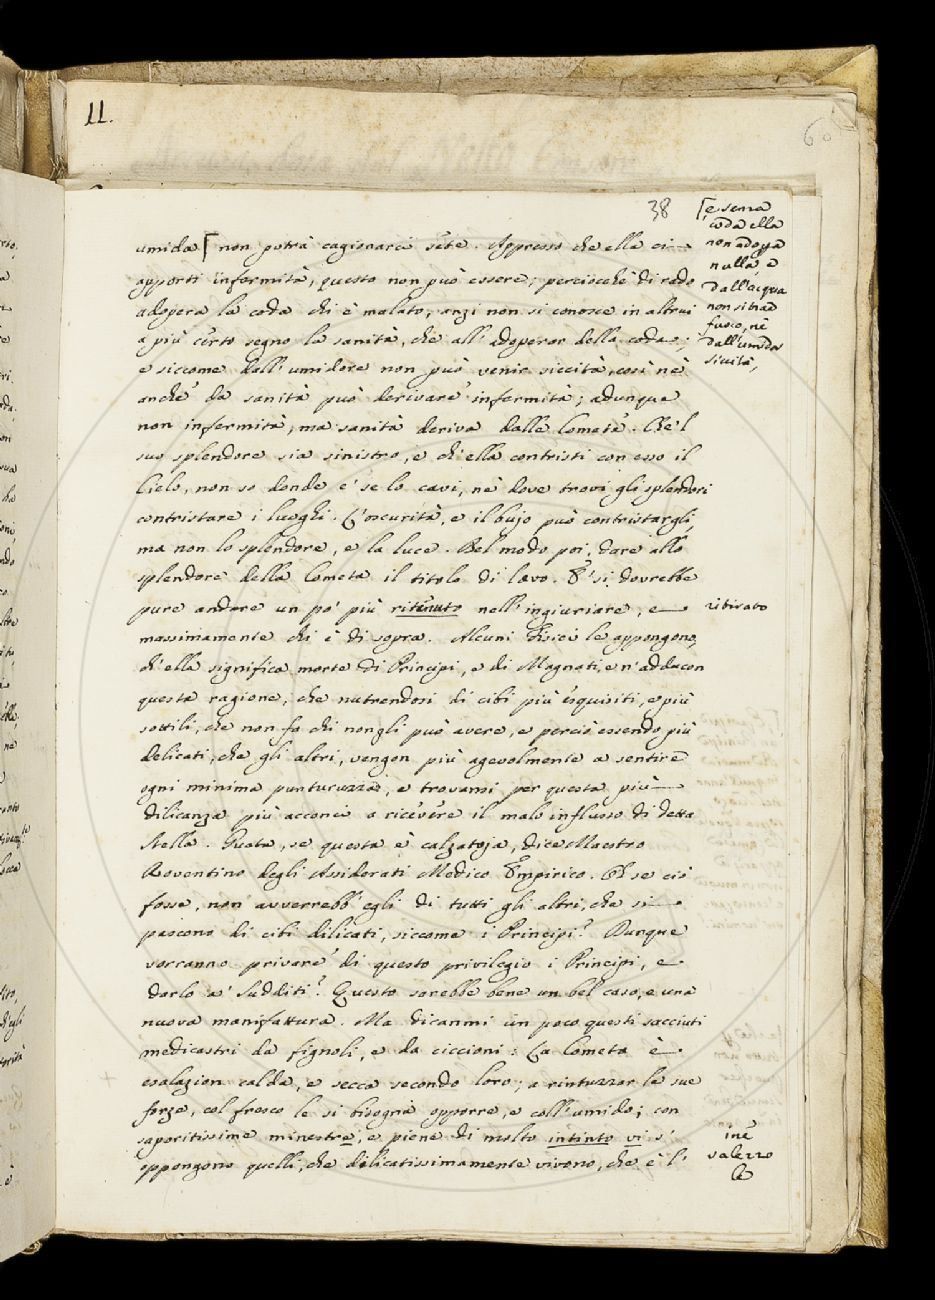 11.
60
38
umida ⌈ non potrà cagionarci sete. Appresso che ella ci —
apporti infermità, questo non può essere; perciocchè di rado
adopera la coda chi è malato, anzi non si conosce in altrui
a più certo segno la sanità, che all' adoperar della coda;
e siccome dall' umidore non può venir siccità, così nè
anche da sanità può derivare infermità; adunque
non infermità, ma sanità deriva dalla Cometa. Che 'l
suo splendore sia sinistro, e ch' ella contristi con esso il
Cielo, non so donde e' se lo cavi, nè dove trovi gli splendori
contristare i luoghi. L'oscurità, e il bujo può contristargli,
ma non lo splendore, e la luce. Bel modo poi, dare allo
splendore della Cometa il titolo di lavo. E' si dovrebbe
pure andare un po' più ritenuto nell' ingiuriare, e —
massimamente chi è di sopra. Alcuni Fisici le appongono,
ch' ella significa morte di Principi, e di Magnati, e n' adducon
questa ragione, che nutrendosi di cibi più esquisiti, e più
sottili, che non fa chi non gli può avere, e perciò essendo più
delicati, che gli altri, vengon più agevolmente a sentire
ogni minima punturuzza, e trovansi per questa più —
dilicanza più acconci a ricevere il malo influsso di detta
Stella. Guata, se questa è calzatoja, dice Maestro
Roventino degli Assiderati Medico Empirico. Oh se ciò
fosse, non avverrebb' egli di tutti gli altri, che si —
pascono di cibi dilicati, siccome i Principi? Dunque
vorranno privare di questo privilegio i Principi, e —
darlo a' Sudditi? Questo sarebbe bene un bel caso, e una
nuova manifattura. Ma dicanmi un poco questi sacciuti
medicastri da fignoli, e da ciccioni: La Cometa è —
esalazion calda, e secca secondo loro; a rintuzzar le sue
forze, col fresco le si bisogna opporre, e coll' umido; con
saporitissime minestre, e piene di molto intinto vi s'
oppongono quelli, che dilicatissimamente vivono, che è l'
⌈ e senza
coda ella
non adopra
nulla, e
dall'acqua
non si trae
fuoco, nè
dall'umido
siccità,
ritirato